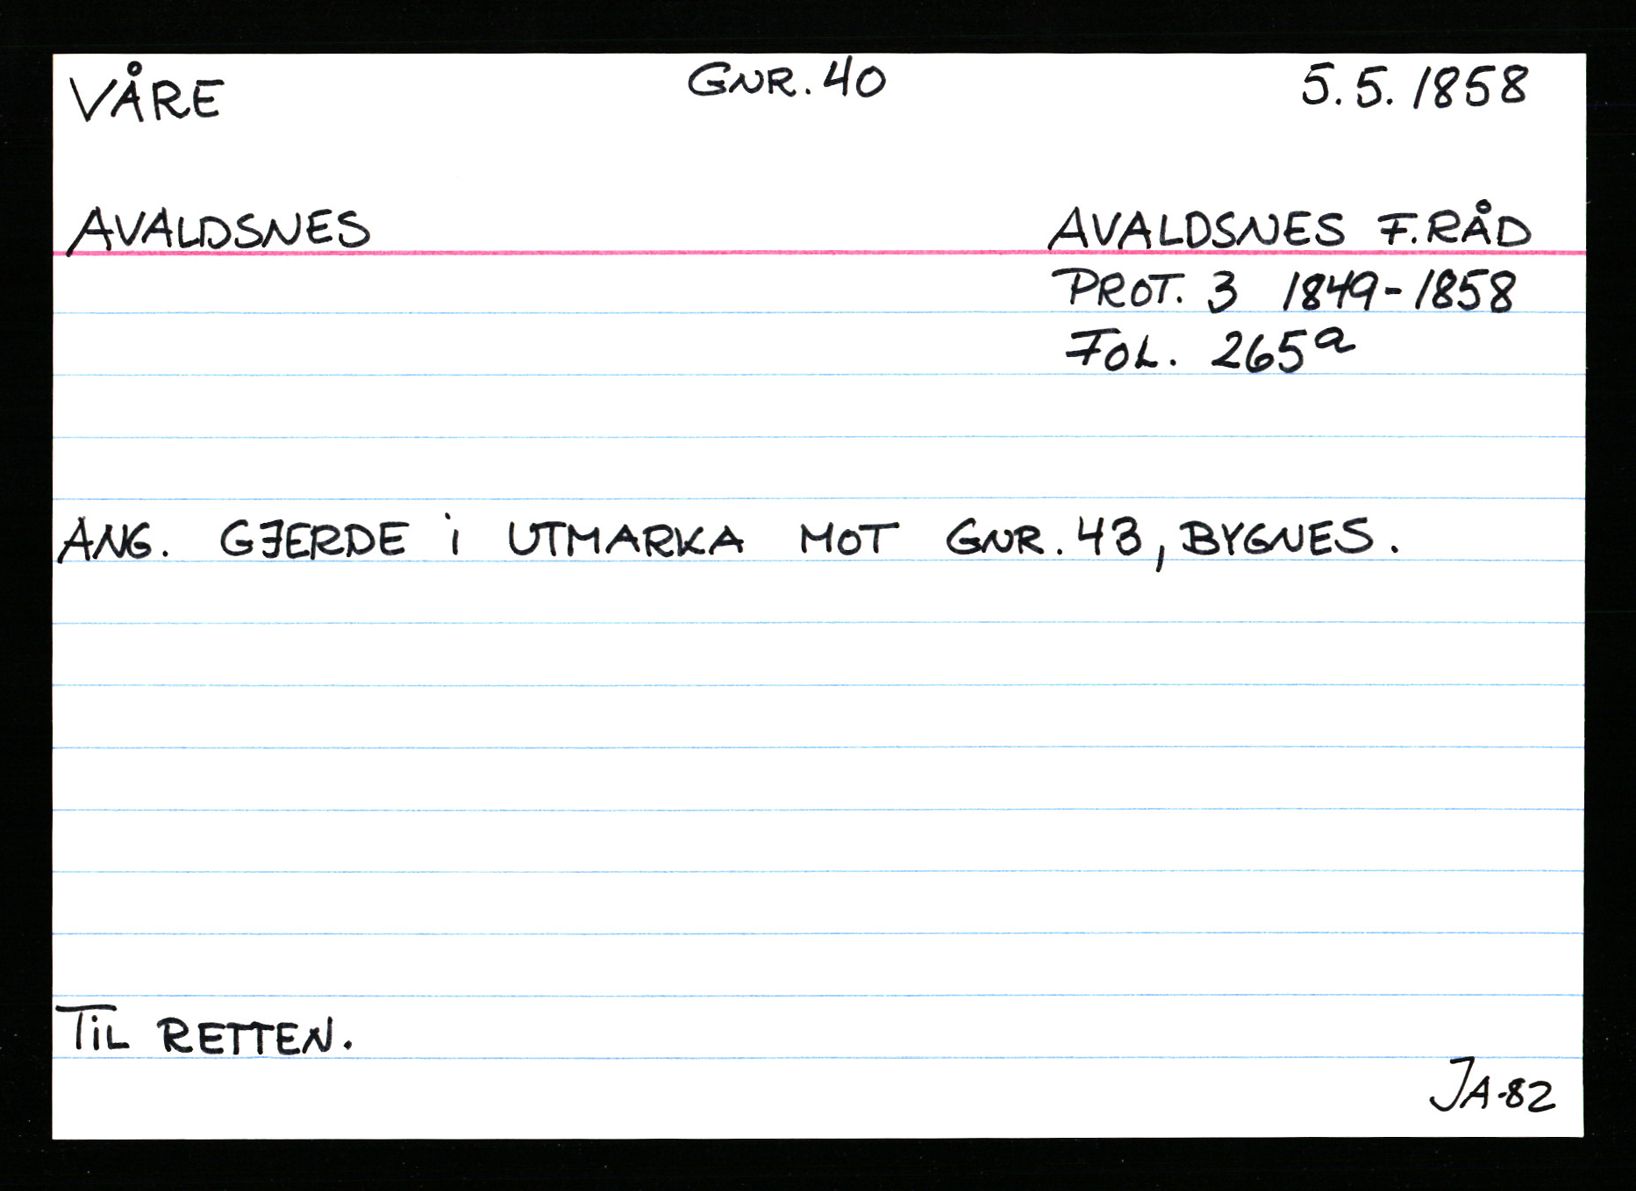 VÅRE GNR. 40 5.5.1858
AVALDSNES AVALDSNES F.RÅD
PROT. 3 1849-1858
FOL. 265a
ANG. GJERDE i UTMARKA MOT GNR. 43, BYGNES.
TiL RETTEN.
JA-82